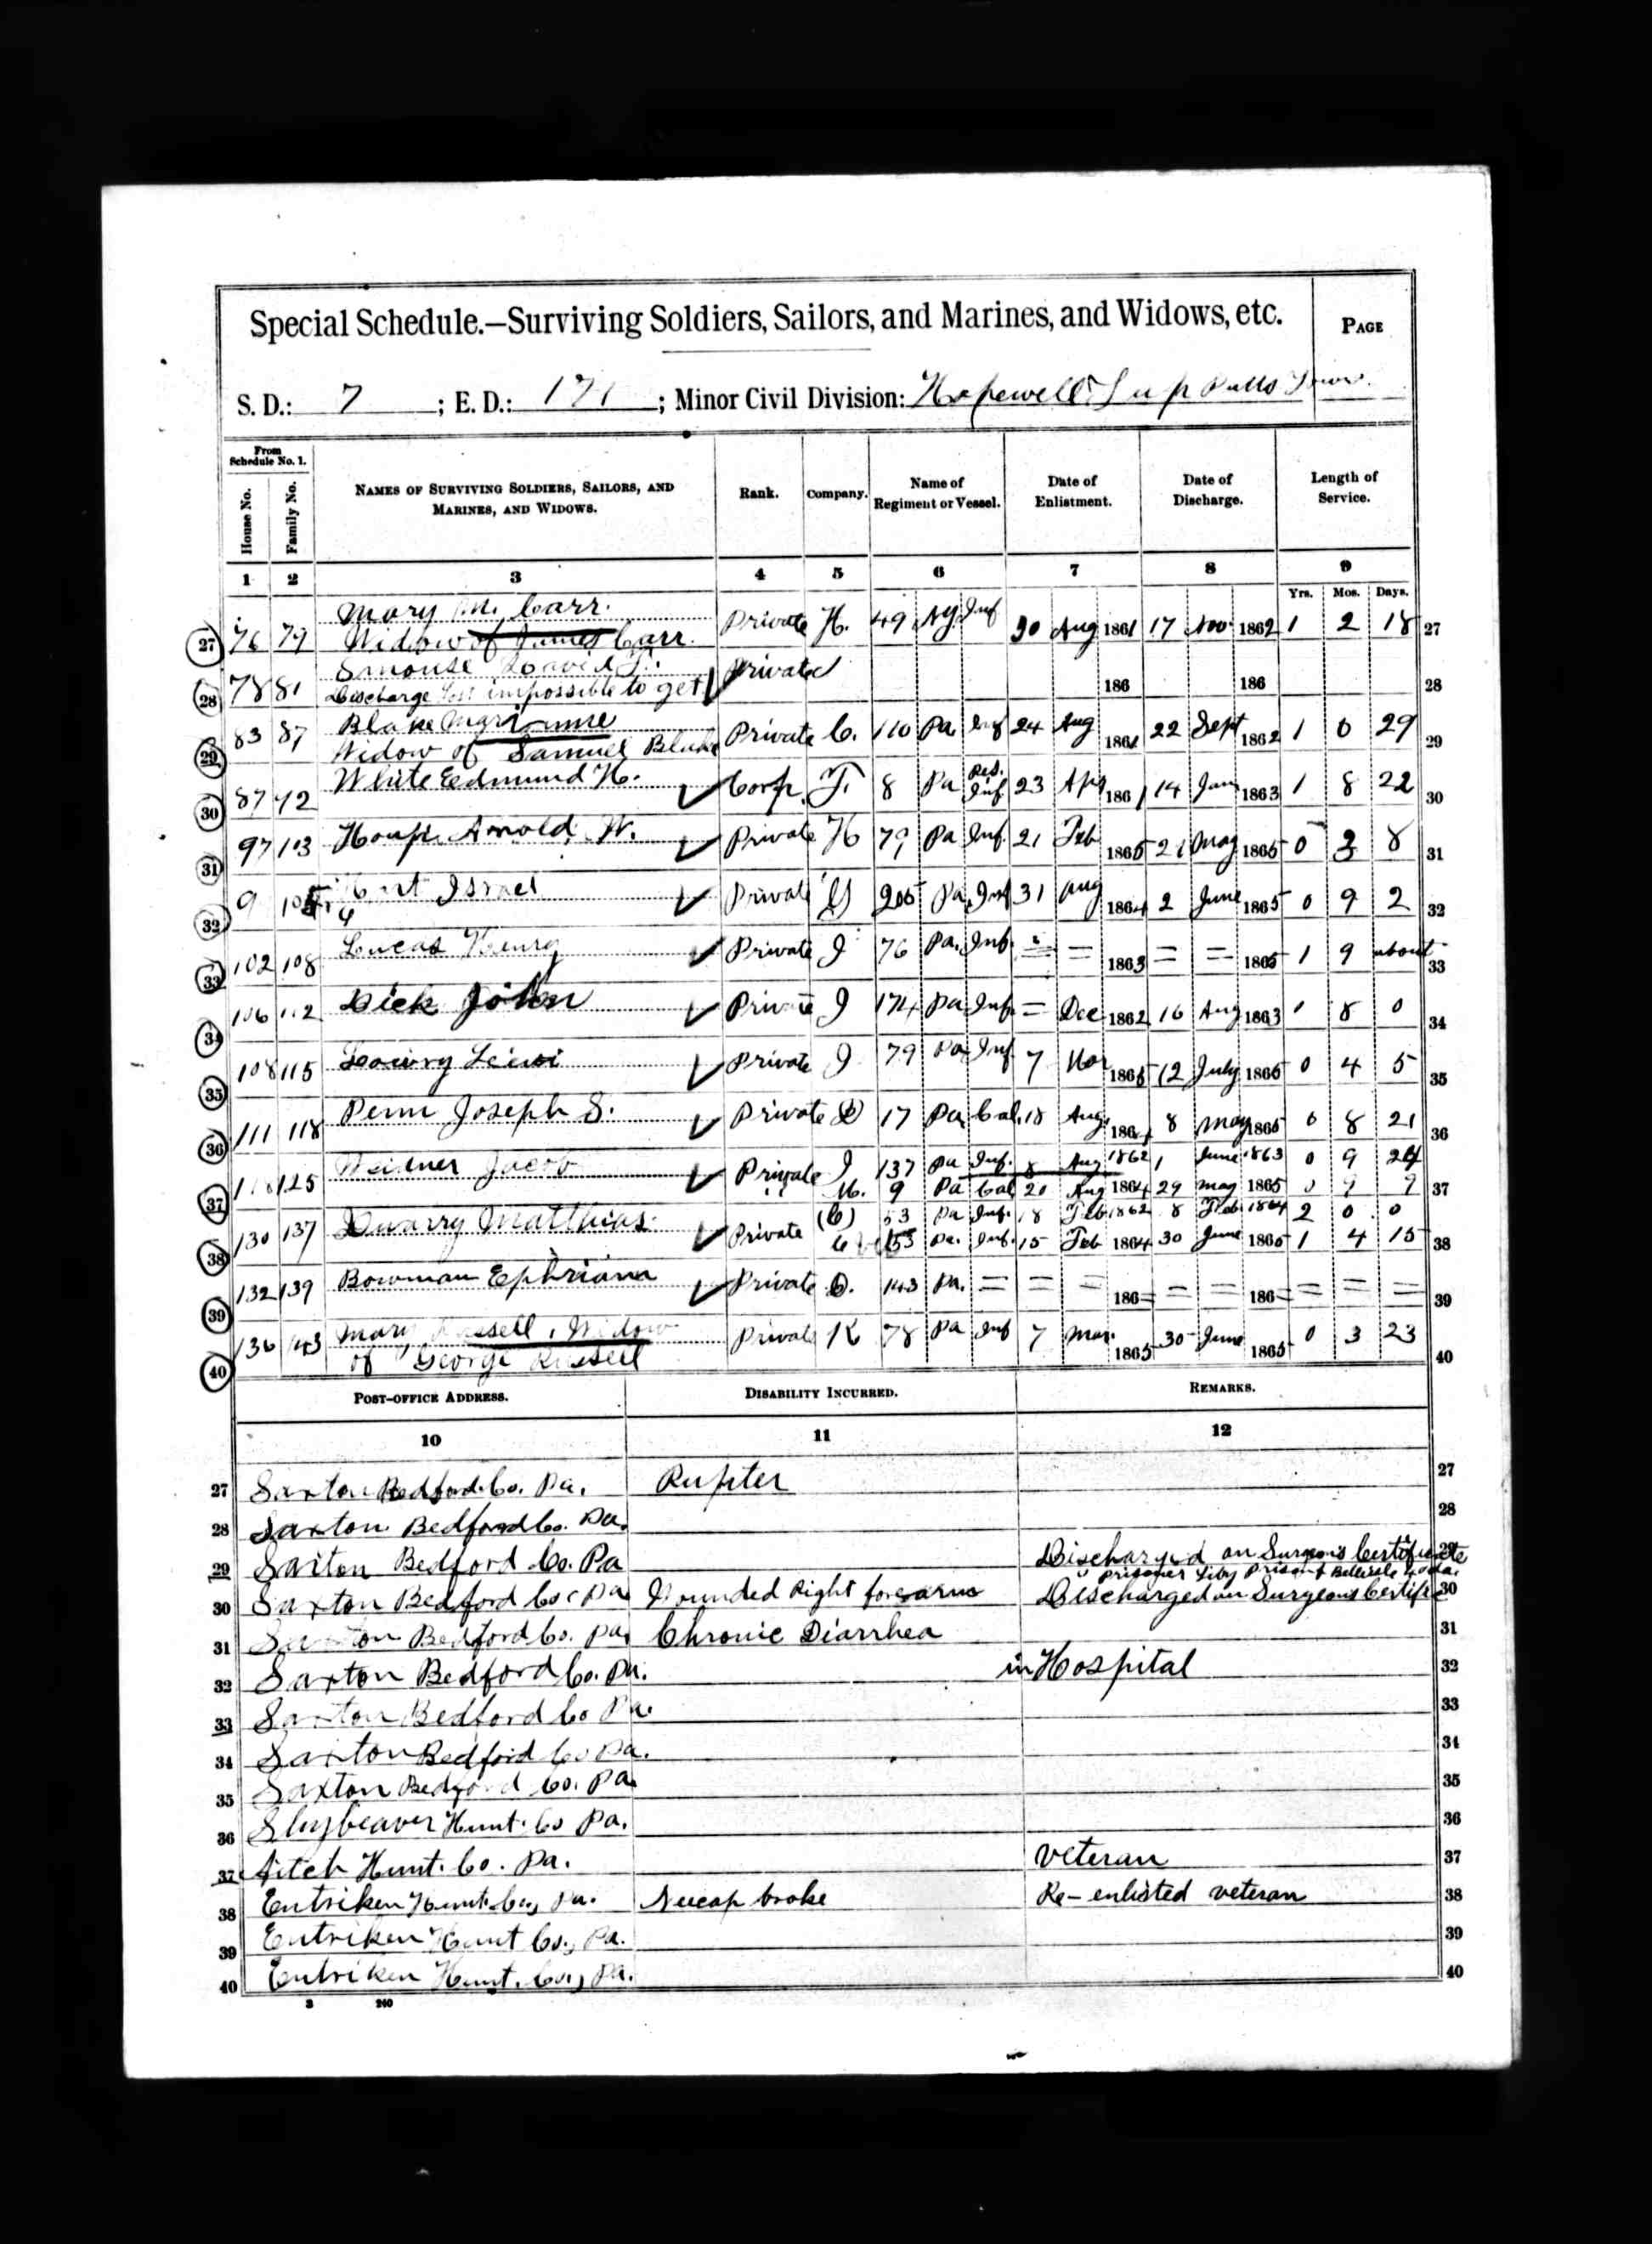 Special Schedule.—Surviving Soldiers, Sailors, and Marines, and Widows, etc.
PAGE
S. D.: 7 ; E. D.: 171 ; Minor Civil Division: Hopewell
From Schedule No. 1.
House No.
Family No.
NAMES OF SURVIVING SOLDIERS, SAILORS, AND MARINES, AND WIDOWS.
Rank.
Company.
Name of Regiment or Vessel.
Date of Enlistment.
Date of Discharge.
Length of Service.
1 2 3 4 5 6 7 8 9
Yrs. Mos. Days.
Mary M. Carr.
27 76 79 Widow of James Carr. Private H. 49 NY. Inf 30 Aug 1861 17 Nov 1862 1 2 18 27
Smouse David
28 78 81 Discharge lost impossible to get Private 186 186 28
Blake Mary
29 83 87 Widow of Samuel Blake Private C. 110 Pa Inf 24 Aug 1861 22 Sept 1862 1 0 29 29
30 87 92 White Edmund H. Corp. F. 8 Pa Res. Inf 23 Apr 1861 14 Jan 1863 1 8 22 30
31 97 103 Houp Arnold W. Private H 79 Pa Inf. 21 Feb 1865 21 May 1865 0 3 8 31
32 9 Israel Private 205 Pa Inf 31 Aug 1864 2 June 1865 0 9 2 32
33 102 108 Lucas Henry Private I 76 Pa. Inf = = 1863 = = 1865 1 9 about 33
34 106 112 Dick John Private I 174 Pa Inf = Dec 1862 16 Aug 1863 8 0 34
35 108 115 Lowry Levi Private I 79 Pa Inf. 7 Mar 1865 12 July 1865 0 4 5 35
36 111 118 Penn Joseph S. Private D 17 Pa Cal. 18 Aug. 186 8 May 1865 0 8 21 36
Weidner Jacob Private I 137 Pa Inf. 8 Aug 1862 1 June 1863 0 9 24
37 125 " M. 9 Pa Cal 20 Aug 1864 29 May 1865 0 9 9 37
Matthias. (C) 53 Pa Inf. 18 Feb 1862 8 Feb 1864 2 0 0
38 130 137 Private C 53 Pa. Inf. 15 Feb 1864 30 June 1865 1 4 15 38
39 132 139 Bowman Ephriam Private D. 143 Pa. = = = 186= = = 186= = = = 39
Mary Russell, Widow
40 136 143 of George Russell Private K 78 Pa Inf 7 Mar. 1865 30 June 1865 0 3 23 40
POST-OFFICE ADDRESS.
DISABILITY INCURRED.
REMARKS.
10 11 12
27 Saxton Bedford Co. Pa. Rupter 27
28 Saxton Bedford Co. Pa. 28
29 Saxton Bedford Co. Pa Discharged on Surgeon's Certificate 29
" Prisoner Liby Prison & Belleisle
30 Saxton Bedford Co. Pa Wounded Right forearm Discharged on Surgeons Certific 30
31 Saxton Bedford Co. Pa. Chronic Diarrhea 31
32 Saxton Bedford Co. Pa. in Hospital 32
33 Saxton Bedford Co Pa. 33
34 Saxton Bedford Co Pa. 34
35 Saxton Bedford Co. Pa. 35
36 Shybeaver Hunt. Co Pa. 36
37 Aitch Hunt. Co. Pa. Veteran 37
38 Entriken Hunt. Co., Pa. Neecap broke Re-enlisted veteran 38
39 Entriken Hunt Co., Pa. 39
40 Entriken Hunt. Co., Pa. 40
3 240